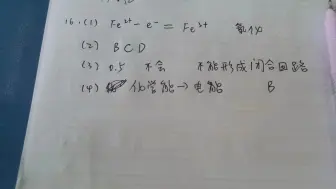 16.(1) Fe²⁺ - e⁻ = Fe³⁺ 氧化
(2) B C D
(3) 0.5 不会 不能形成闭合回路
(4) 化学能→电能 B